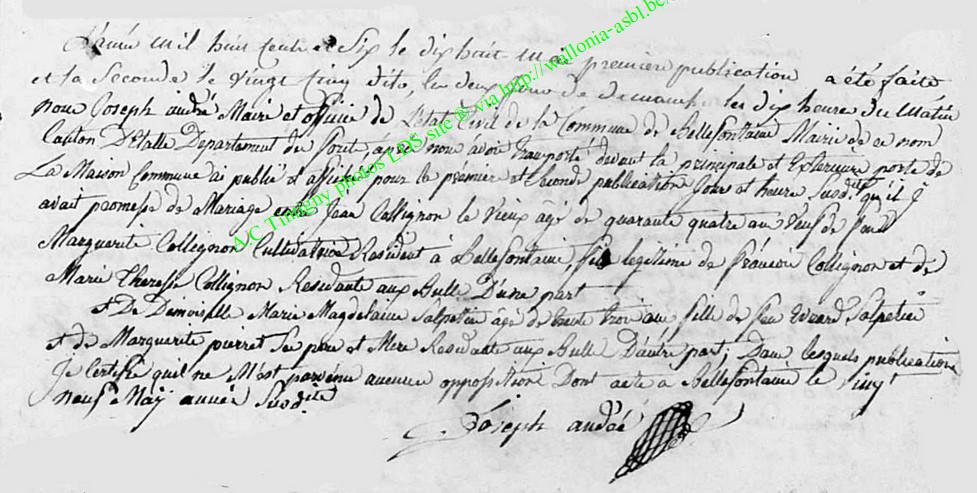 L'année mil huit cents et six le dix huit mai premiere publication a été faite
et la seconde le vingt cinq dito, les deux jours de dimanch les dix heures du Matin
nous Joseph andré Maire et officier de L'état Civil de la Commune de Bellefontaine Mairie de ce nom
Canton D'Etalle Departement du Foret, après nous avoir transporté devant la principale et Exterieure porte de
La Maison Commune ai publié et affiché pour la premier et seconde publication Jour et heure susdits qu'il y
avait promesse de Mariage entre Jean Collignon le vieux âgé de quarante quatre ans Veuf de feue
Marguerite Collignon Cultivateur Resident à Bellefontaine, fils legitime de françois Collignon et de
Marie Therese Collignon Residante aux Bulle D'une part
Et De Demoiselle Marie Magdelaine Salpetier âgé de trente trois ans fille de feu Evrard Salpetier
et de Marguerite pierret Ses pere et Mere Residante aux Bulle D'autre part; Dans lesquels publications
Je Certifie qu'il ne M'est parvenu aucune opposition Dont acte à Bellefontaine le vingt
neuf Maj année Susdite
Joseph andré
A/C Timigny photos LDS site @ via http://wallonia-asbl.be/